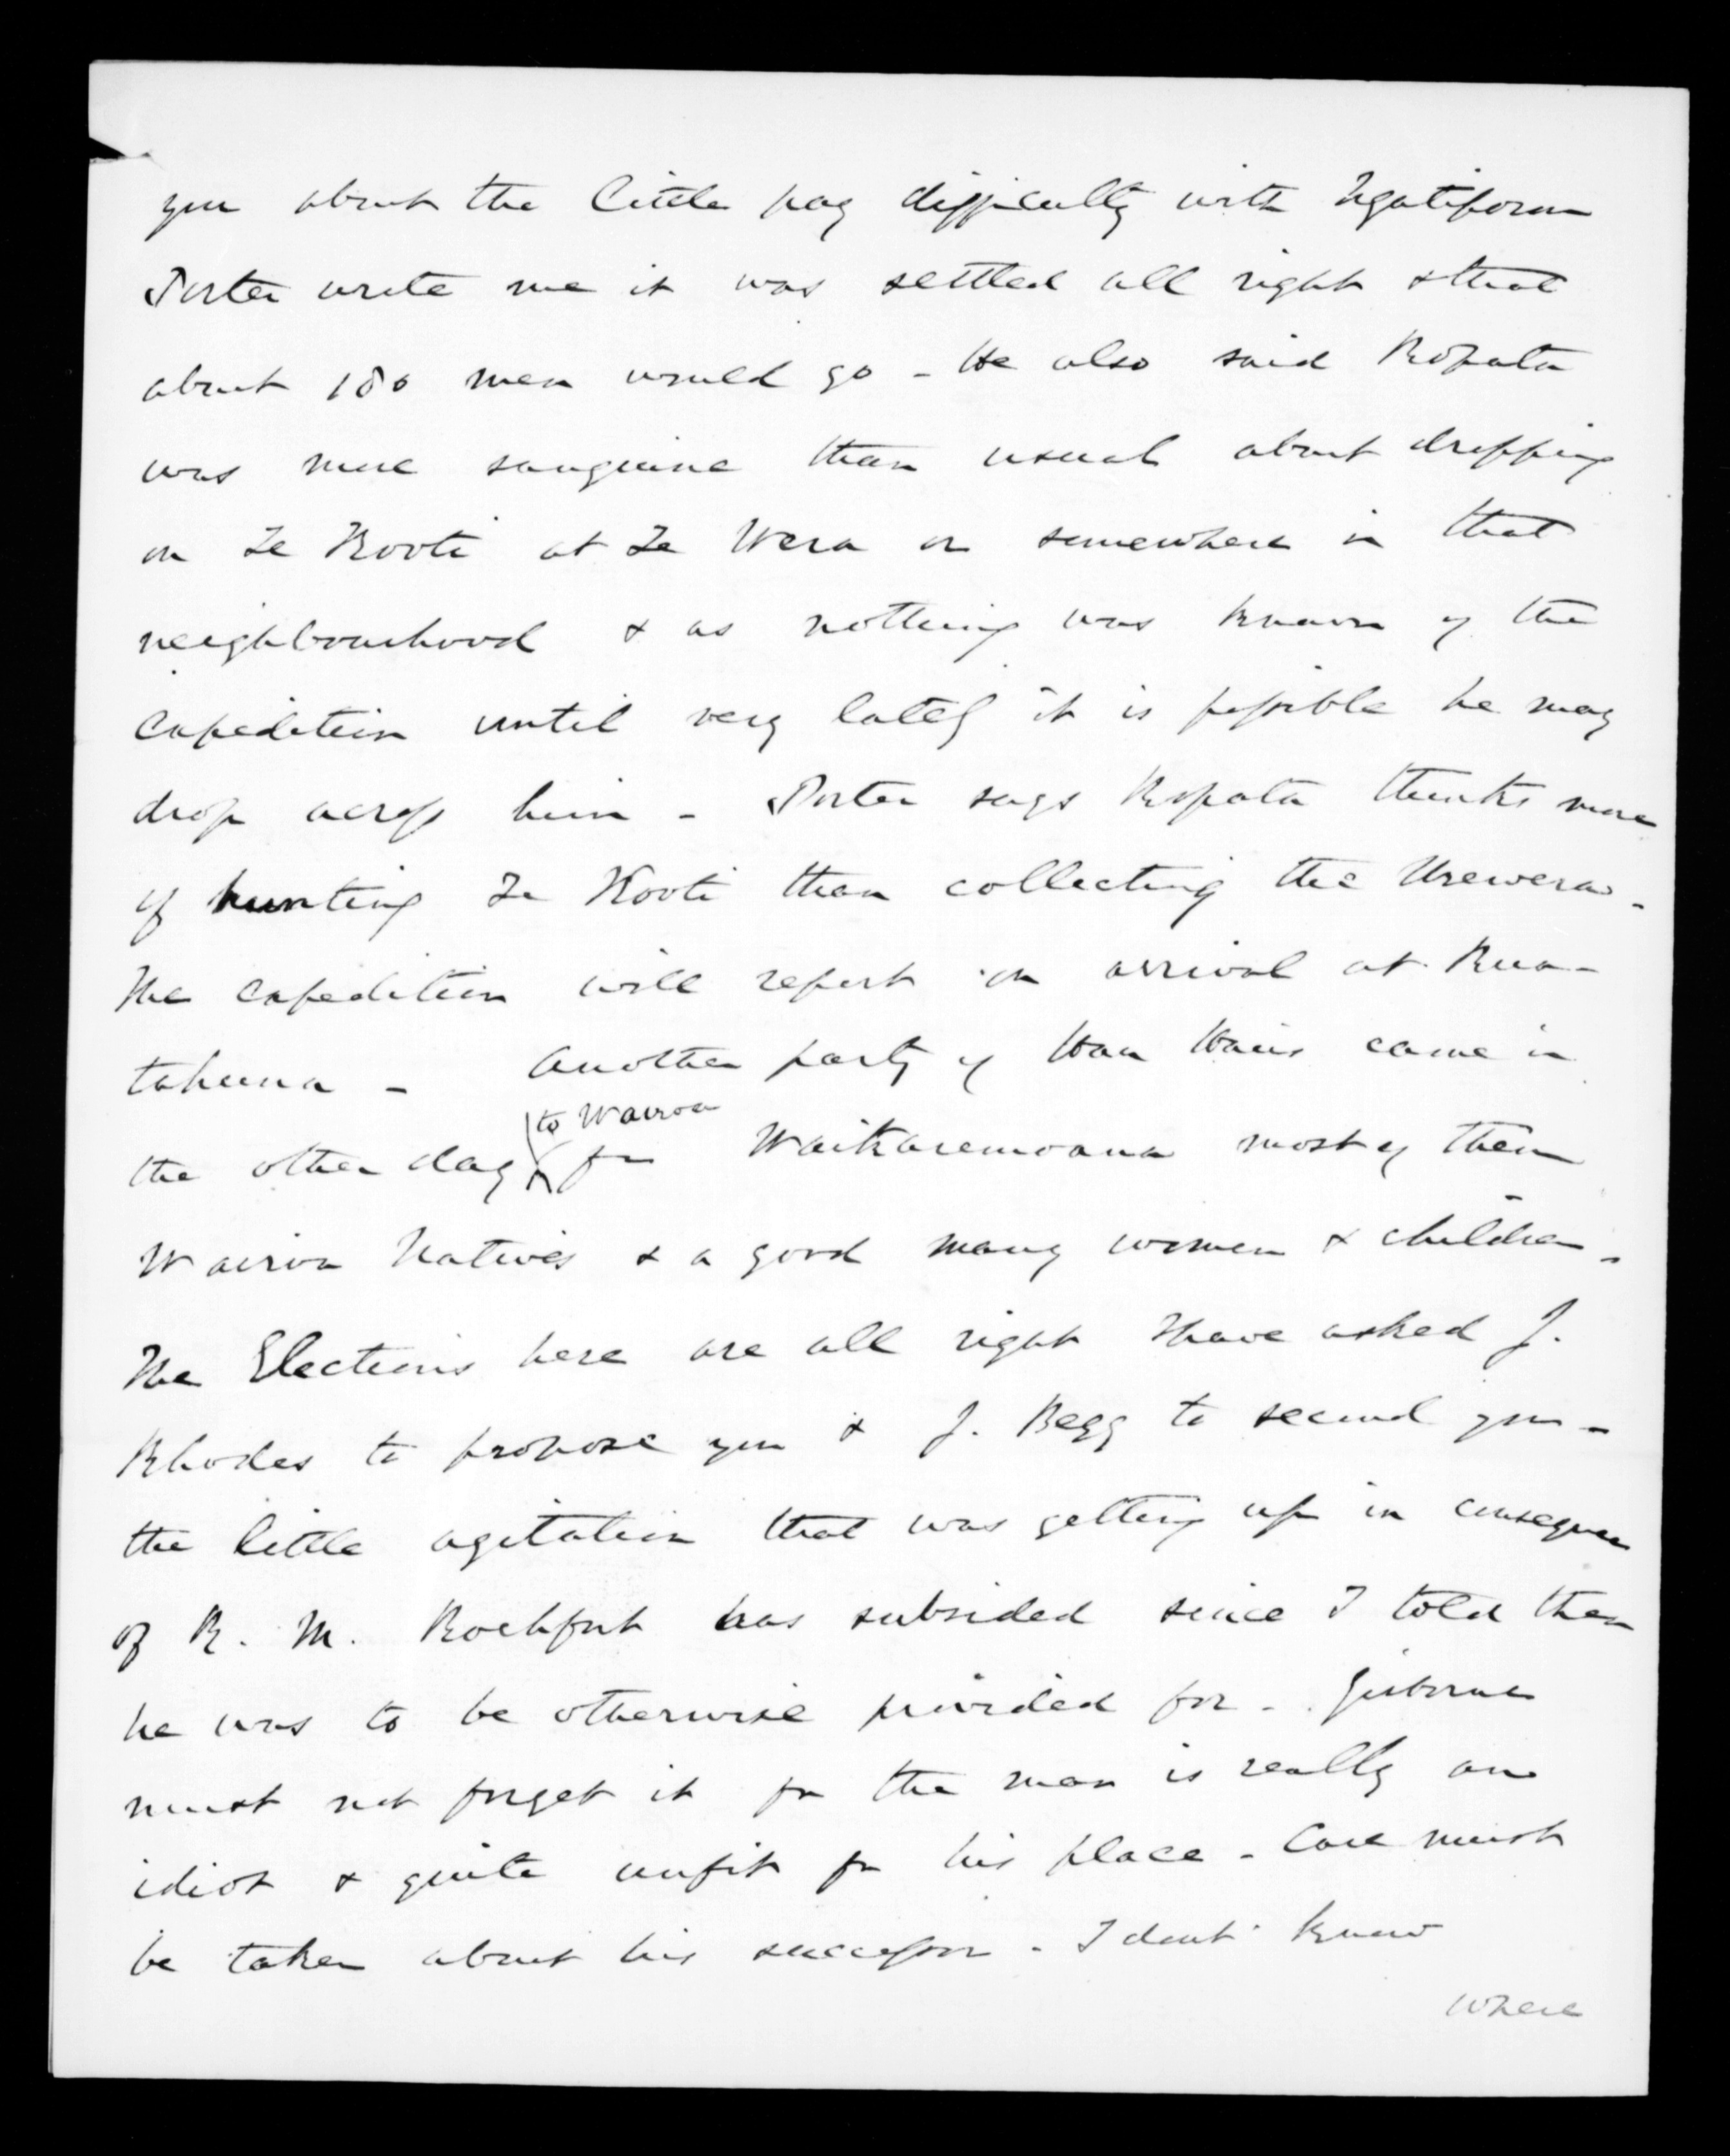 you about the little pay difficulty with Ngatiporou
Porter wrote me it was settled all right & that
about 180 men would go - He also said Ropata
was more sanguine than usual about dropping
on Te Kooti at Te Wera or somewhere in that
neighbourhood & as nothing was known of the
expedition until very lately it is possible he may
drop across him - Porter says Ropata thinks more
of hunting Te Kooti than collecting the Urewera -
The expedition will report on arrival at Rua-
tahuna - Another party of Hau Haus came in
to Wairoa
the other day for Waikaremoana most of them
Wairoa Natives & a good many women & children -
The Elections here are all right I have asked J.
Rhodes to propose you & J. Begg to second you -
the little agitation that was getting up in consequen
of R. M. Rochfort has subsided since I told them
he was to be otherwise provided for - Gisborne
must not forget it for the man is really an
idiot & quite unfit for his place - Care must
be taken about his successor - I dont know
where